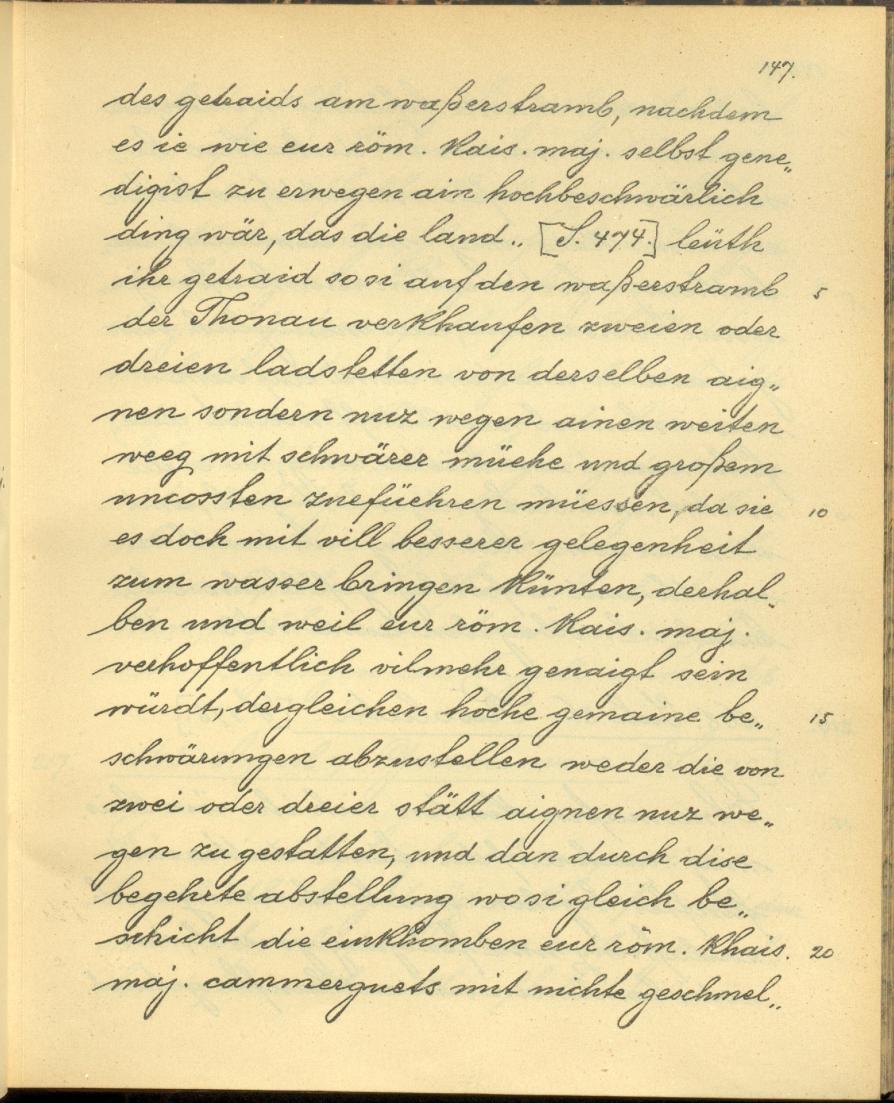 147.
des getraids am waßerstramb, nachdem
es ie wie eur röm. Kais. maj. selbst gene„
digist zu erwegen ain hochbeschwärlich
ding wär, das die land„ [S. 474.] leüth
ihr getraid so si auf den waßerstramb 5
der Thonau verkhaufen zweien oder
dreien ladstetten von derselben aig„
nen sondern nuz wegen ainen weiten
weeg mit schwärer müehe und großem
uncossten zuefüehren müessen, da sie 10
es doch mit vill besserer gelegenheit
zum wasser bringen künten, derhal„
ben und weil eur röm. Kais. maj.
verhoffentlich vilmehr genaigt sein
würdt, dergleichen hoche gemaine be„ 15
schwärungen abzustellen weder die von
zwei oder dreier stätt aignen nuz we„
gen zu gestatten, und dan durch dise
begehrte abstellung wo si gleich be„
schicht die einkhomben eur röm. Khais. 20
maj. cammerguets mit nichte geschmel„